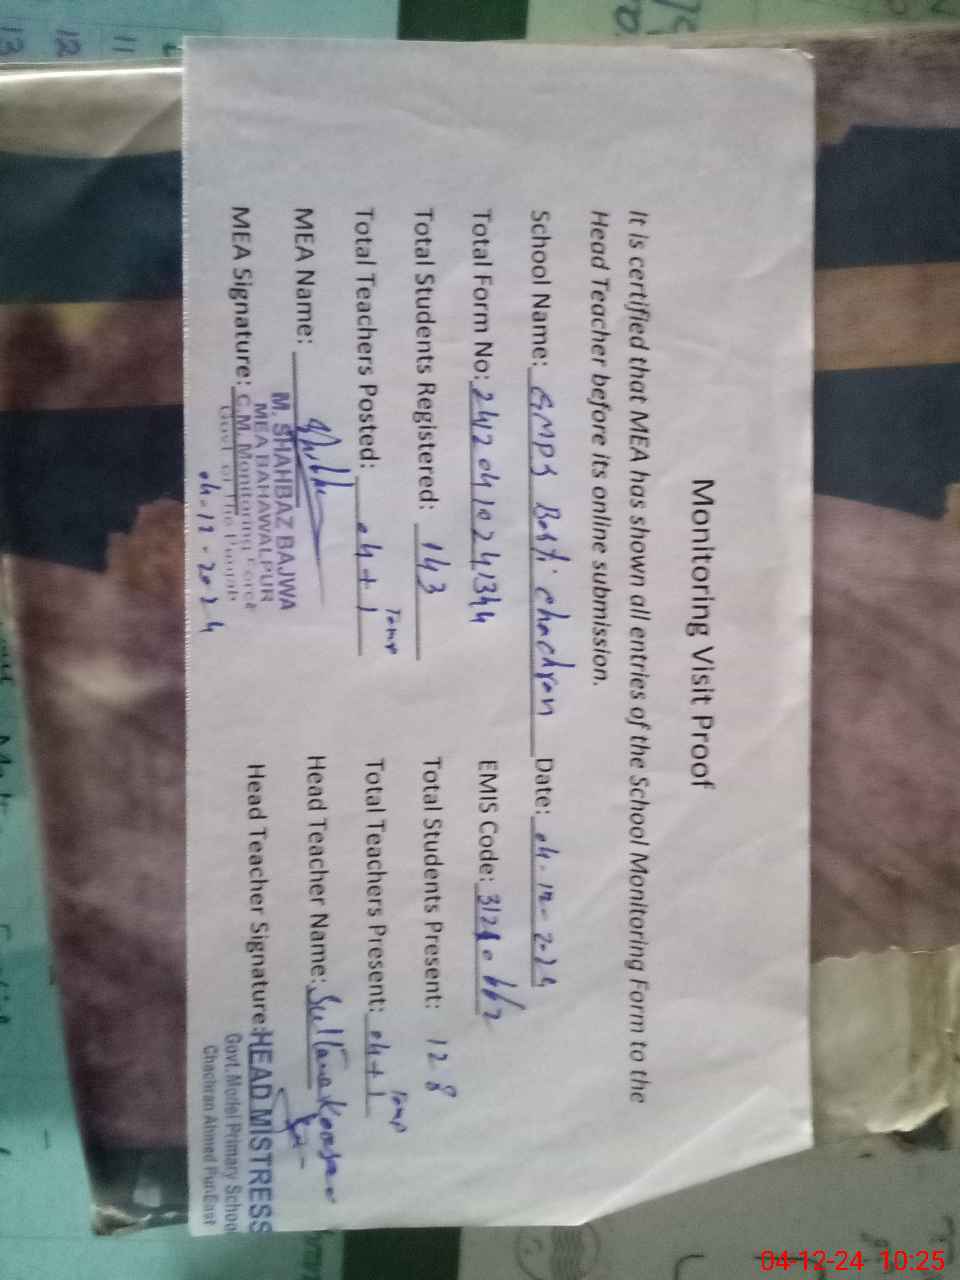 Monitoring Visit Proof
It is certified that MEA has shown all entries of the School Monitoring Form to the
Head Teacher before its online submission.
School Name: GMPS Basti chachran Date: 04-12-2024
Total Form No: 24120410241344 EMIS Code:
Total Students Registered: 143 Total Students Present: 128
Total Teachers Posted: 04+1 Temp Total Teachers Present: 04+1 Temp
MEA Name: Head Teacher Name: Sultana Kousar
M. SHAHBAZ BAJWA
MEA BAHAWALPUR
MEA Signature: C.M. Monitoring Force Head Teacher Signature: HEAD MISTRESS
Govt of The Punjab Govt. Model Primary Schoo
04-12-2024 Chachran Ahmed Pur East
04-12-24 10:25